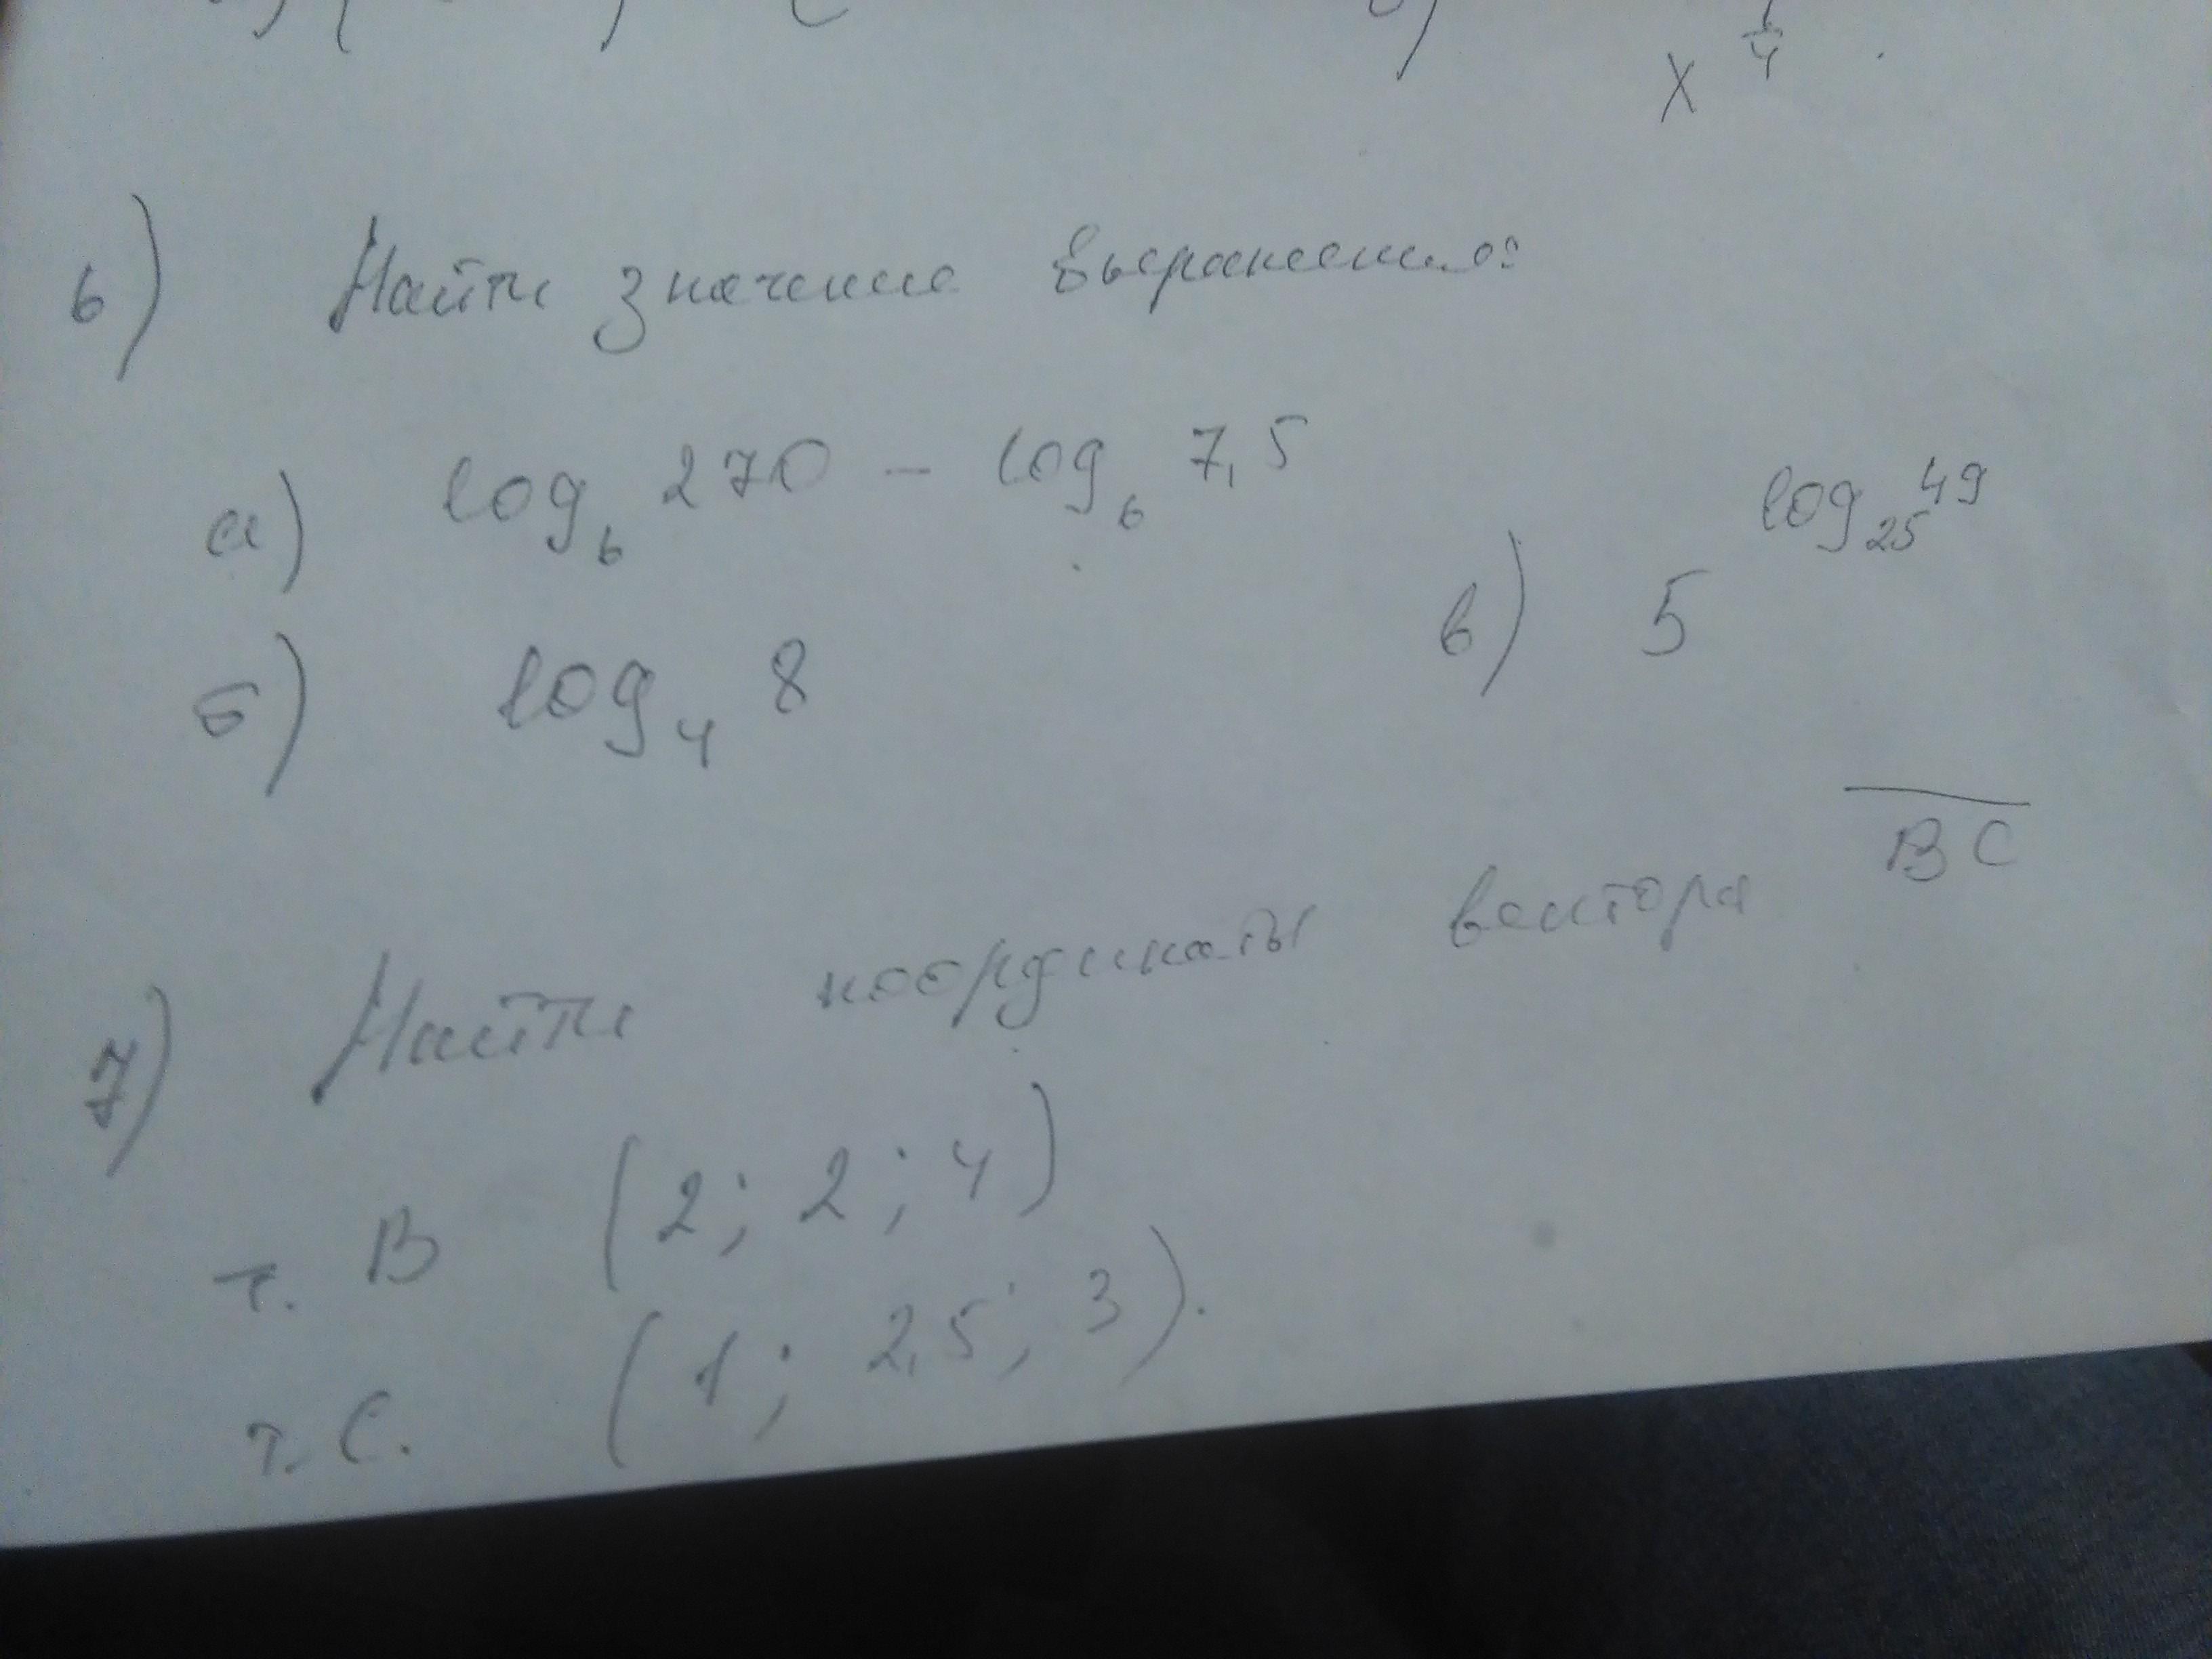 x^{1/4}.
6) Найти значение выражения:
а) log₆ 270 – log₆ 7,5
в) 5^{log₂₅ 49}
б) log₄ 8
7) Найти координаты вектора \overline{BC}
т. B (2; 2; 4)
т. C. (1; 2,5; 3).